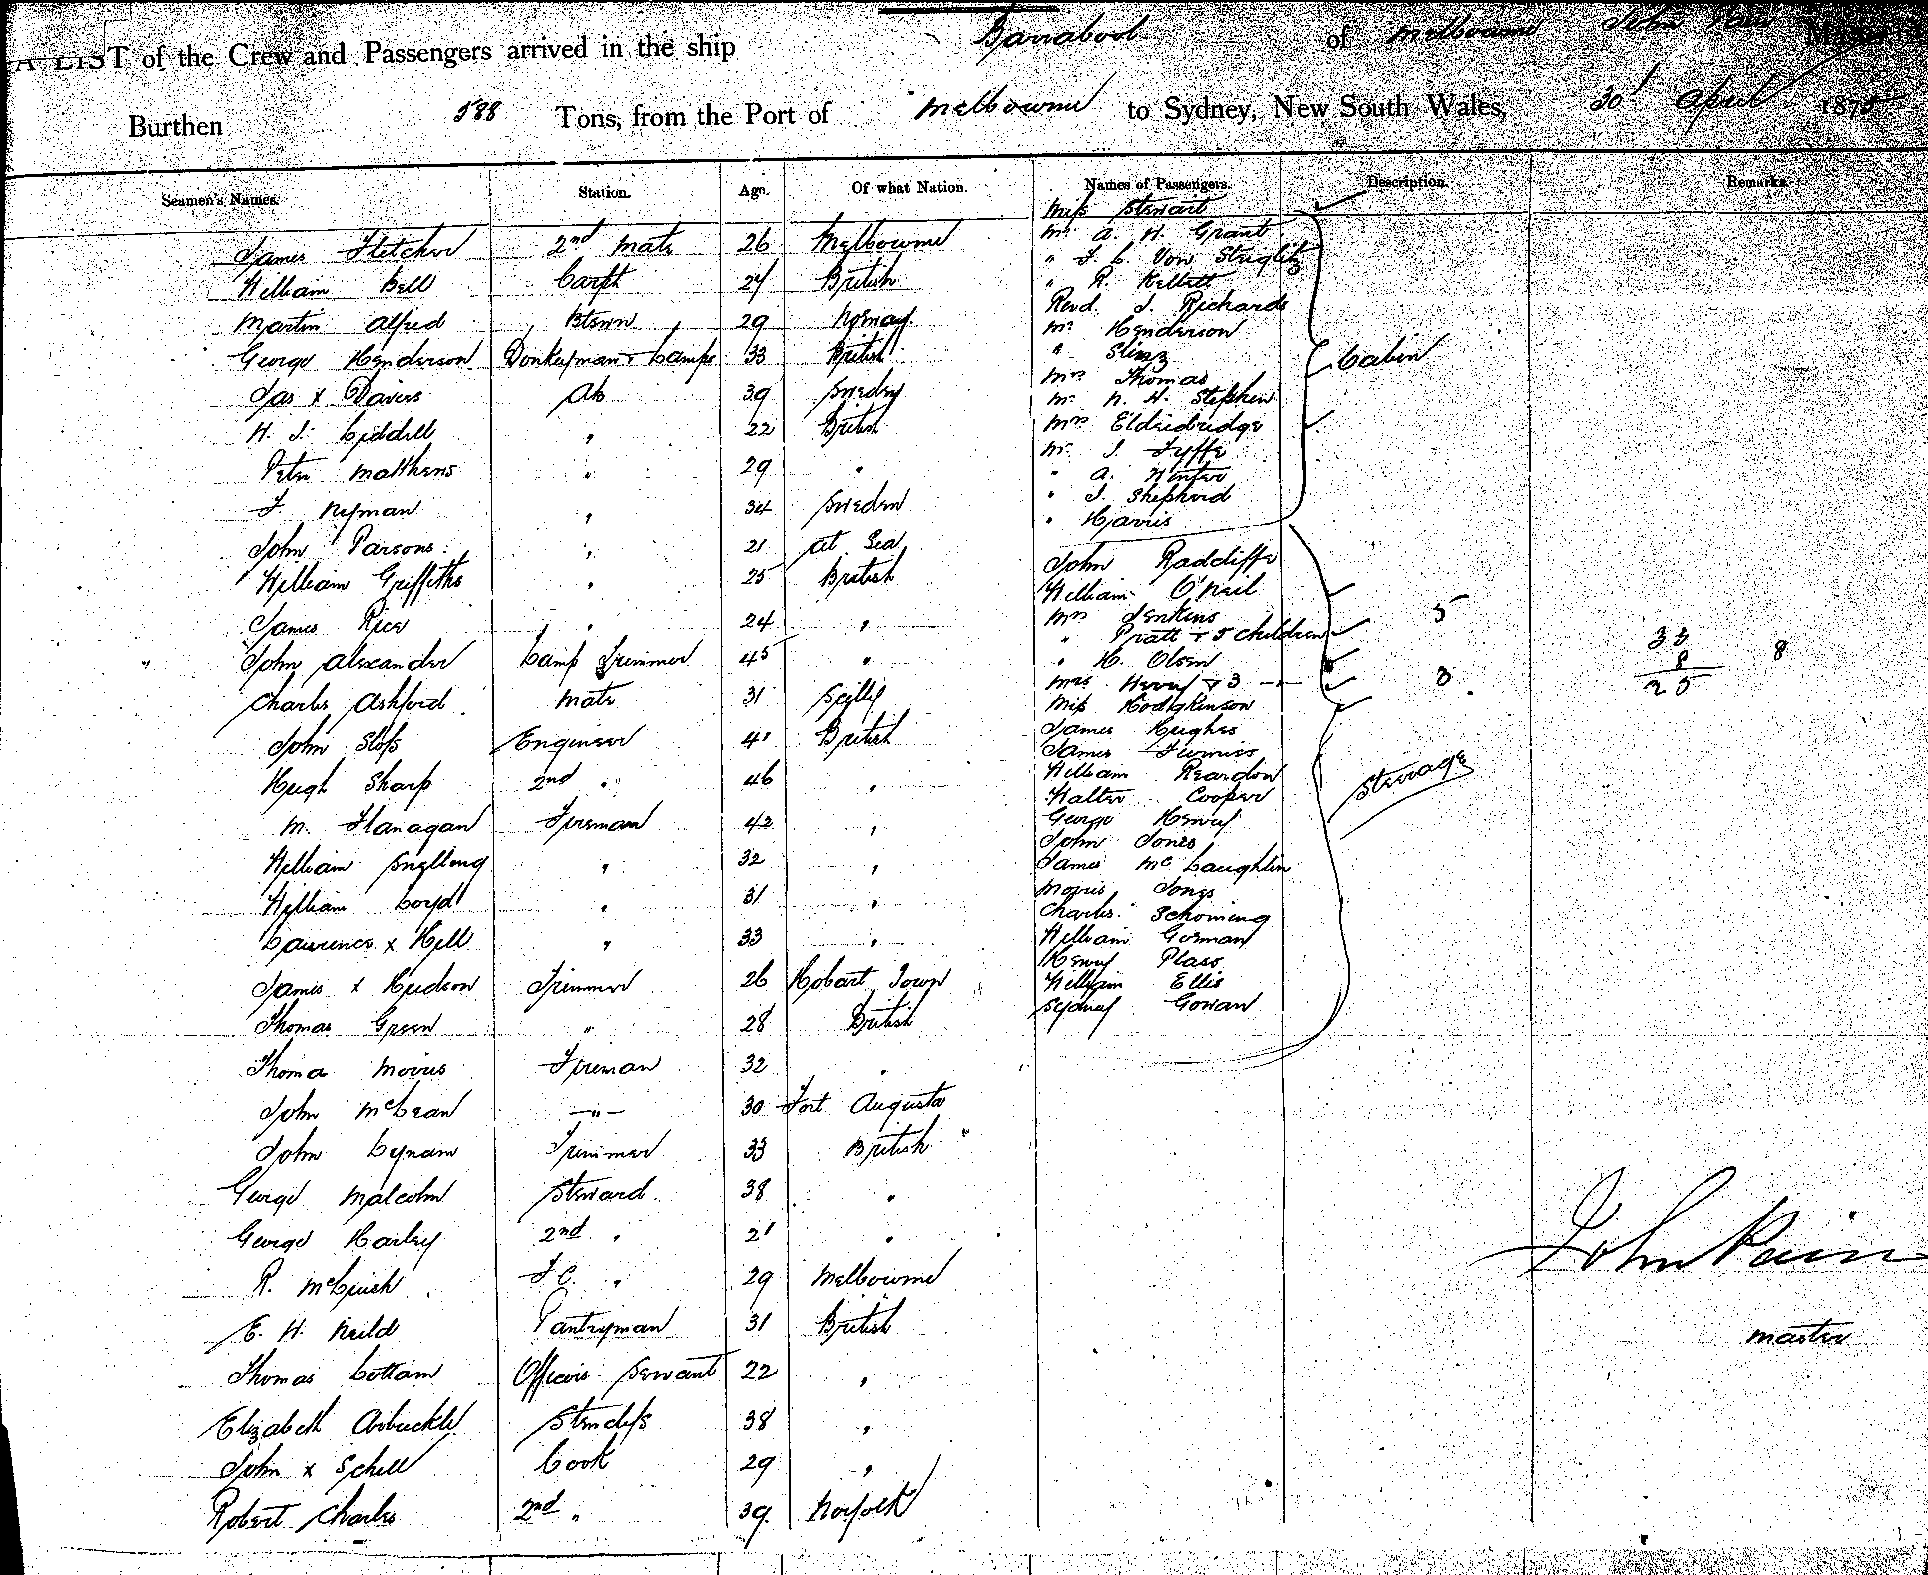 A LIST of the Crew and Passengers arrived in the ship Barrabool of Melbourne John Master
Burthen 588 Tons, from the Port of Melbourne to Sydney, New South Wales, 30 April 1875
Seamen's Names. Station. Age. Of what Nation. Names of Passengers. Description. Remarks.
Miss Stewart
James Fletcher 2nd Mate 26 Melbourne Mr A. H. Grant
" Von Stieglitz
William Bell Carpt 27 British " R. Kellett
Revd J. Richards
Martin Alfred 29 Norway Mr Henderson
George Henderson Donkeyman & Lamps 33 British "
Mrs Thomas Cabin
Jas x Davers AB 39 Sweden Mr H. Stephen
H. J. Liddell " 22 British Mrs Eldridridge
Mr J. Fyffe
Peter Matthews " 29 " " A. Hunter
" J. Shepherd
F. Nyman " 34 Sweden " Harris
John Parsons " 21 at Sea
John Radcliffe
William Griffiths " 25 British William O'Neil
Mrs Jenkins 5
James Rice " 24 " " Pratt & 5 children
John Alexander Lamp Trimmer 45 " " H. Olsen 33 8 8
Charles Ashford Mate 31 Scilly Mrs Henry & 3 3 25
Miss Hodgkinson
John Sloss Engineer 41 British James Hughes
James Furniss
Hugh Sharp 2nd " 46 " William Reardon Steerage
Walter Cooper
M. Flanagan Fireman 42 " George Henry
John Jones
William Snelling " 32 " James McLaughlin
William Loyd " 31 " Morris Jones
Charles Schoning
Lawrence x Hill " 33 " William Gorman
Henry Plass
James x Hudson Trimmer 26 Hobart Town William Ellis
Sydney Gowan
Thomas Green " 28 British
Thomas Morris Fireman 32 "
John McLean " 30 Fort Augusta
John Lynam Trimmer 33 British "
George Malcolm Steward 38 "
George Harley 2nd " 21 "
R. F.C. " 29 Melbourne
E. H. Neild Pantryman 31 British
Thomas Cottam Officers Servant 22 "
Elizabeth Arbuckle Stewdess 38 "
John x Schell Cook 29 "
Robert Charles 2nd " 39 Norfolk
John Pain
master